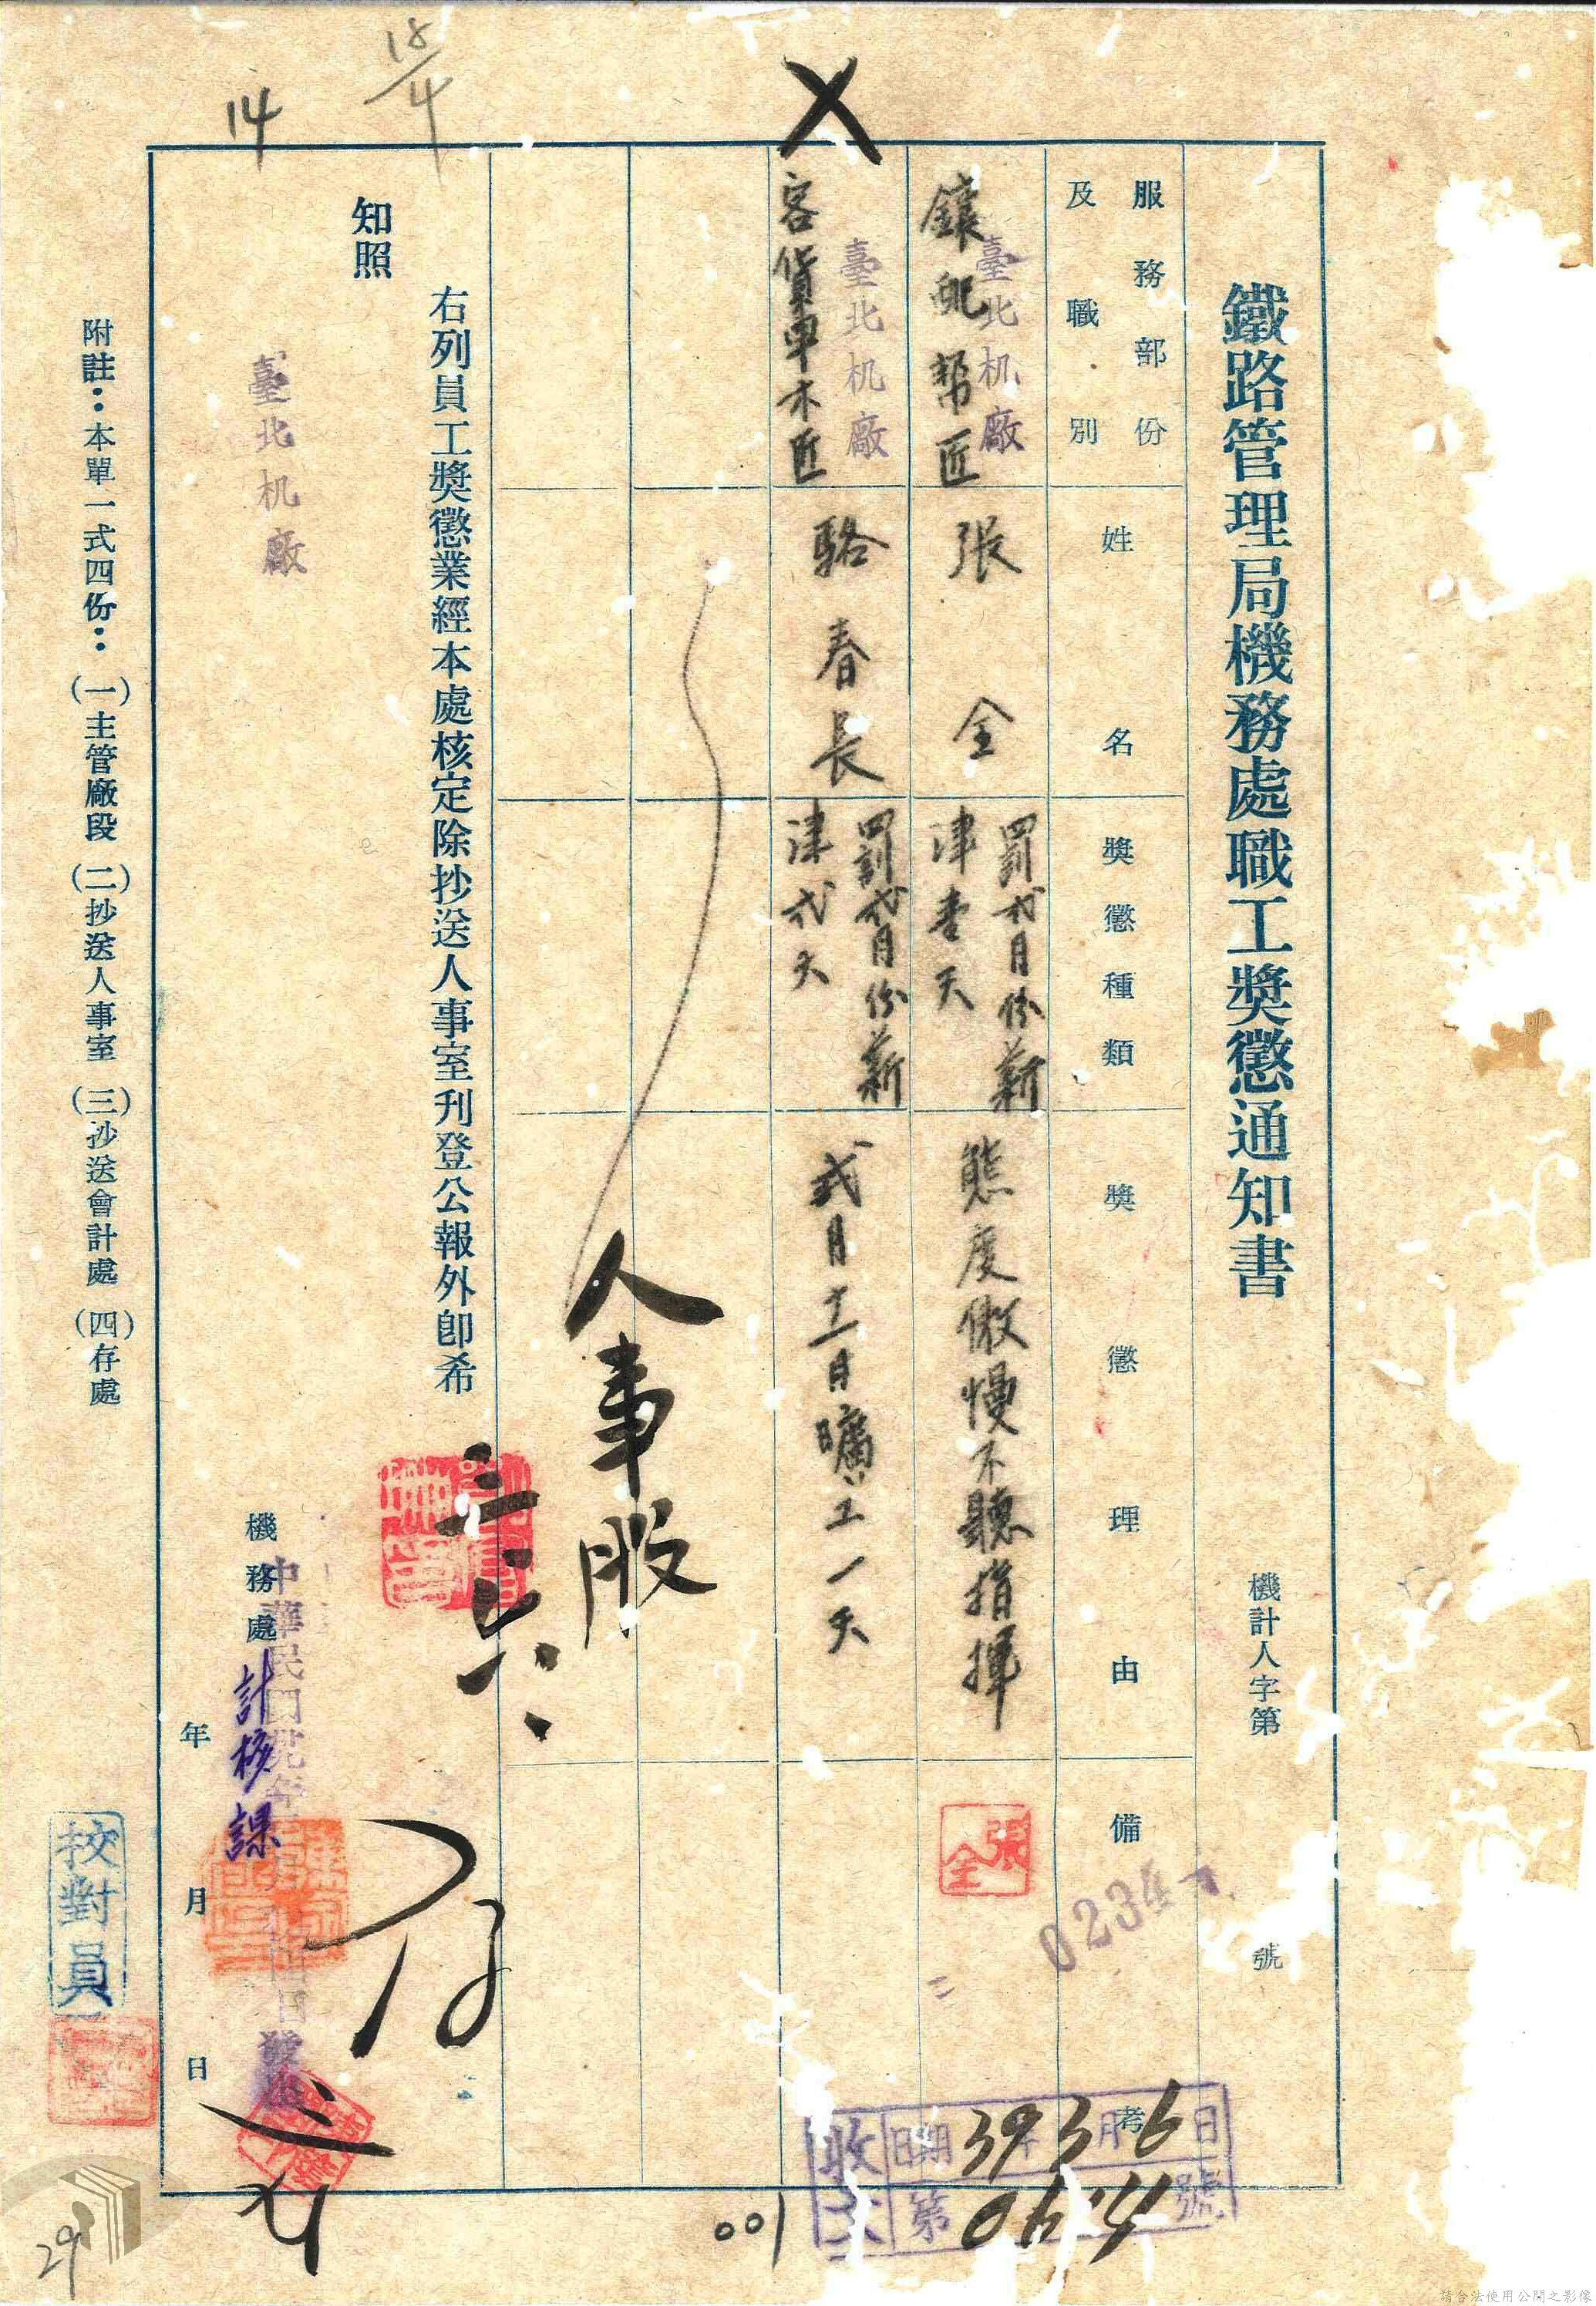 鐵路管理局機務處職工獎懲通知書
機計人字第 號
02347
服務部份
及職別
姓名
獎懲種類
獎懲理由
備考
臺北机廠
鑲配幫匠
張全
罰弍月份薪
津壹天
態度傲慢不聽指揮
張全
臺北机廠
客貨車木匠
駱春長
罰弍月份薪
津弍天
弍月十一日曠工一天
人事股
三六
右列員工獎懲業經本處核定除抄送人事室刊登公報外卽希
知照
臺北机廠
機務處
計核課
中華民國卅九年
年 月 日
附註：本單一式四份：(一)主管廠段 (二)抄送人事室 (三)抄送會計處 (四)存處
校對員
收文
日期 39年3月6日
第0614號
001
14
18/4
29
請合法使用公開之影像